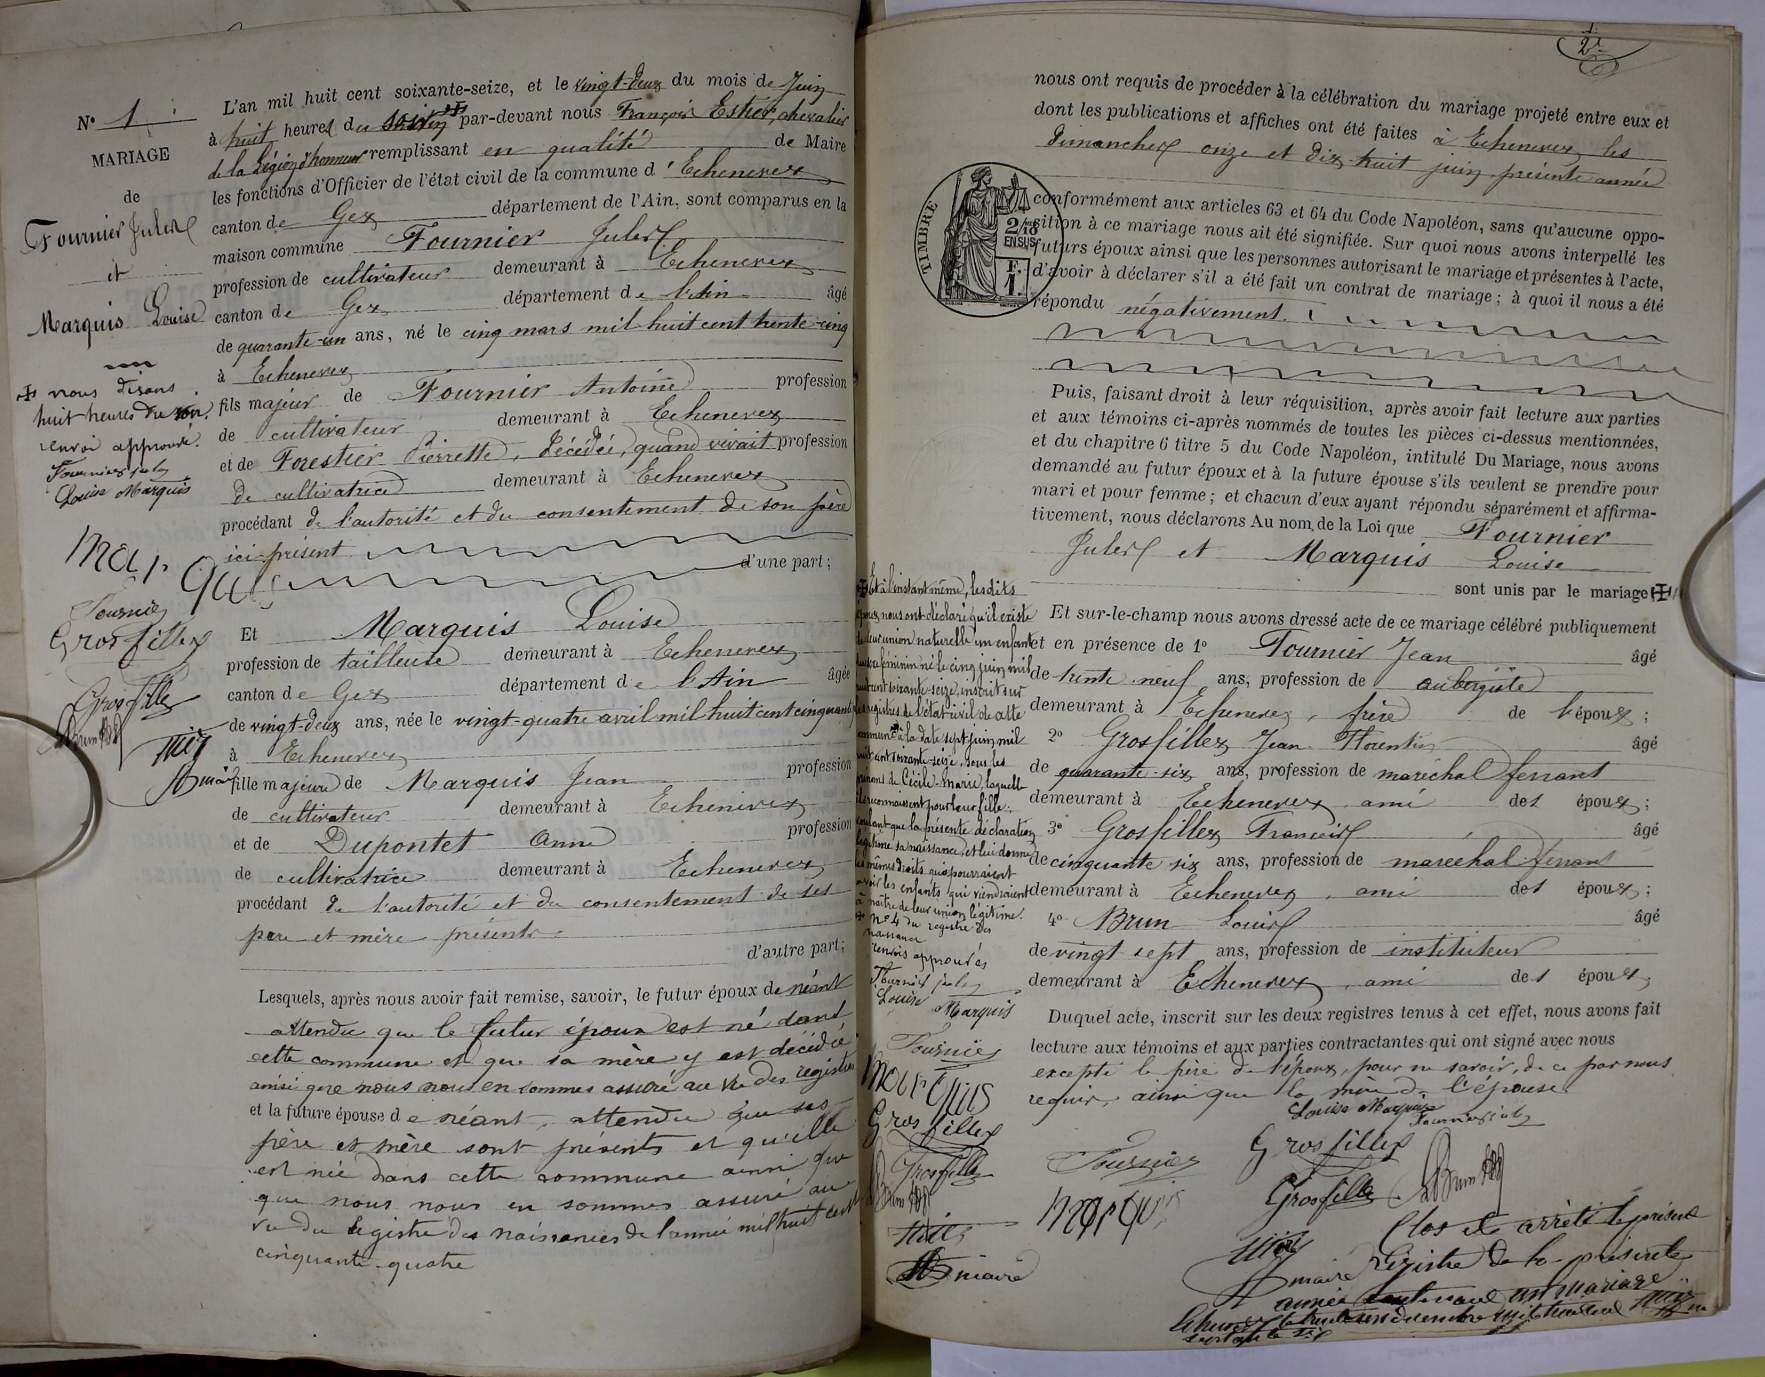 N° 1
MARIAGE
de
Fournier Jules
et
Marquis Louise
nous disons
huit heures du soir.
renvoi approuvé.
Fournier jules
Louise Marquis
Marquis
Fournier
Grosfillex
Grosfillex
Brun
maire
L'an mil huit cent soixante-seize, et le vingt-deux du mois de Juin
à huit heures du par-devant nous François Estier, chevalier
de la Légion d'honneur remplissant en qualité de Maire
les fonctions d'Officier de l'état civil de la commune d'Echenevex
canton de Gex département de l'Ain, sont comparus en la
maison commune Fournier Jules
profession de cultivateur demeurant à Echenevex
canton de Gex département de l'Ain âgé
de quarante-un ans, né le cinq mars mil huit cent trente-cinq
à Echenevex
fils majeur de Fournier Antoine profession
de cultivateur demeurant à Echenevex
et de Forestier Pierrette, décédée, quand vivait profession
de cultivatrice demeurant à Echenevex
procédant de l'autorité et du consentement de son père
ici présent
d'une part;
Et Marquis Louise
profession de tailleuse demeurant à Echenevex
canton de Gex département de l'Ain âgée
de vingt-deux ans, née le vingt-quatre avril mil huit cent cinquante
à Echenevex
fille majeure de Marquis Jean profession
de cultivateur demeurant à Echenevex
et de Dupontet Anne profession
de cultivatrice demeurant à Echenevex
procédant de l'autorité et du consentement de ses
père et mère présents
d'autre part;
Lesquels, après nous avoir fait remise, savoir, le futur époux de néant
attendu que le futur époux est né dans
cette commune et que sa mère y est décédée
ainsi que nous nous en sommes assuré au vu des registres
et la future épouse de néant, attendu que ses
père et mère sont présents et qu'elle
est née dans cette commune ainsi que
que nous nous en sommes assuré au
vu du registre des naissances de l'année mil huit cent
cinquante-quatre
2
nous ont requis de procéder à la célébration du mariage projeté entre eux et
dont les publications et affiches ont été faites à Echenevex les
dimanches onze et dix-huit juin présente année
TIMBRE
2/10
EN SUS
F.
1.
conformément aux articles 63 et 64 du Code Napoléon, sans qu'aucune oppo-
sition à ce mariage nous ait été signifiée. Sur quoi nous avons interpellé les
futurs époux ainsi que les personnes autorisant le mariage et présentes à l'acte,
d'avoir à déclarer s'il a été fait un contrat de mariage; à quoi il nous a été
répondu négativement.
Puis, faisant droit à leur réquisition, après avoir fait lecture aux parties
et aux témoins ci-après nommés de toutes les pièces ci-dessus mentionnées,
et du chapitre 6 titre 5 du Code Napoléon, intitulé Du Mariage, nous avons
demandé au futur époux et à la future épouse s'ils veulent se prendre pour
mari et pour femme; et chacun d'eux ayant répondu séparément et affirma-
tivement, nous déclarons Au nom de la Loi que Fournier
Jules et Marquis Louise
sont unis par le mariage
Et sur-le-champ nous avons dressé acte de ce mariage célébré publiquement
et en présence de 1° Fournier Jean âgé
de trente-neuf ans, profession de aubergiste
demeurant à Echenevex, frère de l'époux;
2° Grosfillex Jean Florentin âgé
de quarante-six ans, profession de maréchal ferrant
demeurant à Echenevex ami des époux;
3° Grosfillex François âgé
de cinquante six ans, profession de maréchal ferrant
demeurant à Echenevex, ami des époux;
4° Brun Louis âgé
de vingt-sept ans, profession de instituteur
demeurant à Echenevex, ami des époux,
Duquel acte, inscrit sur les deux registres tenus à cet effet, nous avons fait
lecture aux témoins et aux parties contractantes qui ont signé avec nous
excepté le père de l'époux, pour ne savoir, de ce par nous
requis, ainsi que la mère de l'épouse.
Et à l'instant même, lesdits
époux nous ont déclaré qu'il existe
de leur union naturelle un enfant
du sexe féminin né le cinq juin mil
huit cent soixante-seize, inscrit sur
les registres de l'état civil de cette
commune à la date sept juin mil
huit cent soixante-seize, sous les
prénoms de Cécile Marie, laquelle
ils reconnaissent pour leur fille.
voulant que la présente déclaration
légitime sa naissance, et lui donne
les mêmes droits que pourraient
avoir les enfants qui viendraient
à naître de leur union légitime.
N° 4 du registre des
naissances
renvois approuvés
Fournier jules
Louise Marquis
Fournier
Marquis
Grosfillex
Grosfillex
Brun
maire
Louise Marquis
Fournier jules
Fournier
Grosfillex
Marquis
Grosfillex
Brun
maire
Clos et arrêté le présent
registre de la présente
année contenant un mariage
Echenevex le trente un décembre mil huit cent
soixante seize